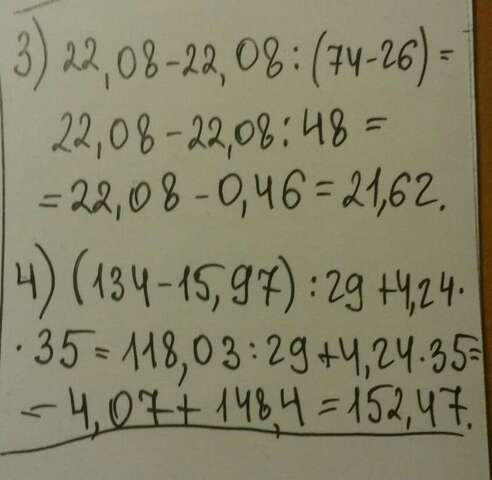 3) 22,08-22,08:(74-26)=
22,08-22,08:48=
=22,08-0,46=21,62.
4) (134-15,97):29+4,24·
·35=118,03:29+4,24·35=
=4,07+148,4=152,47.